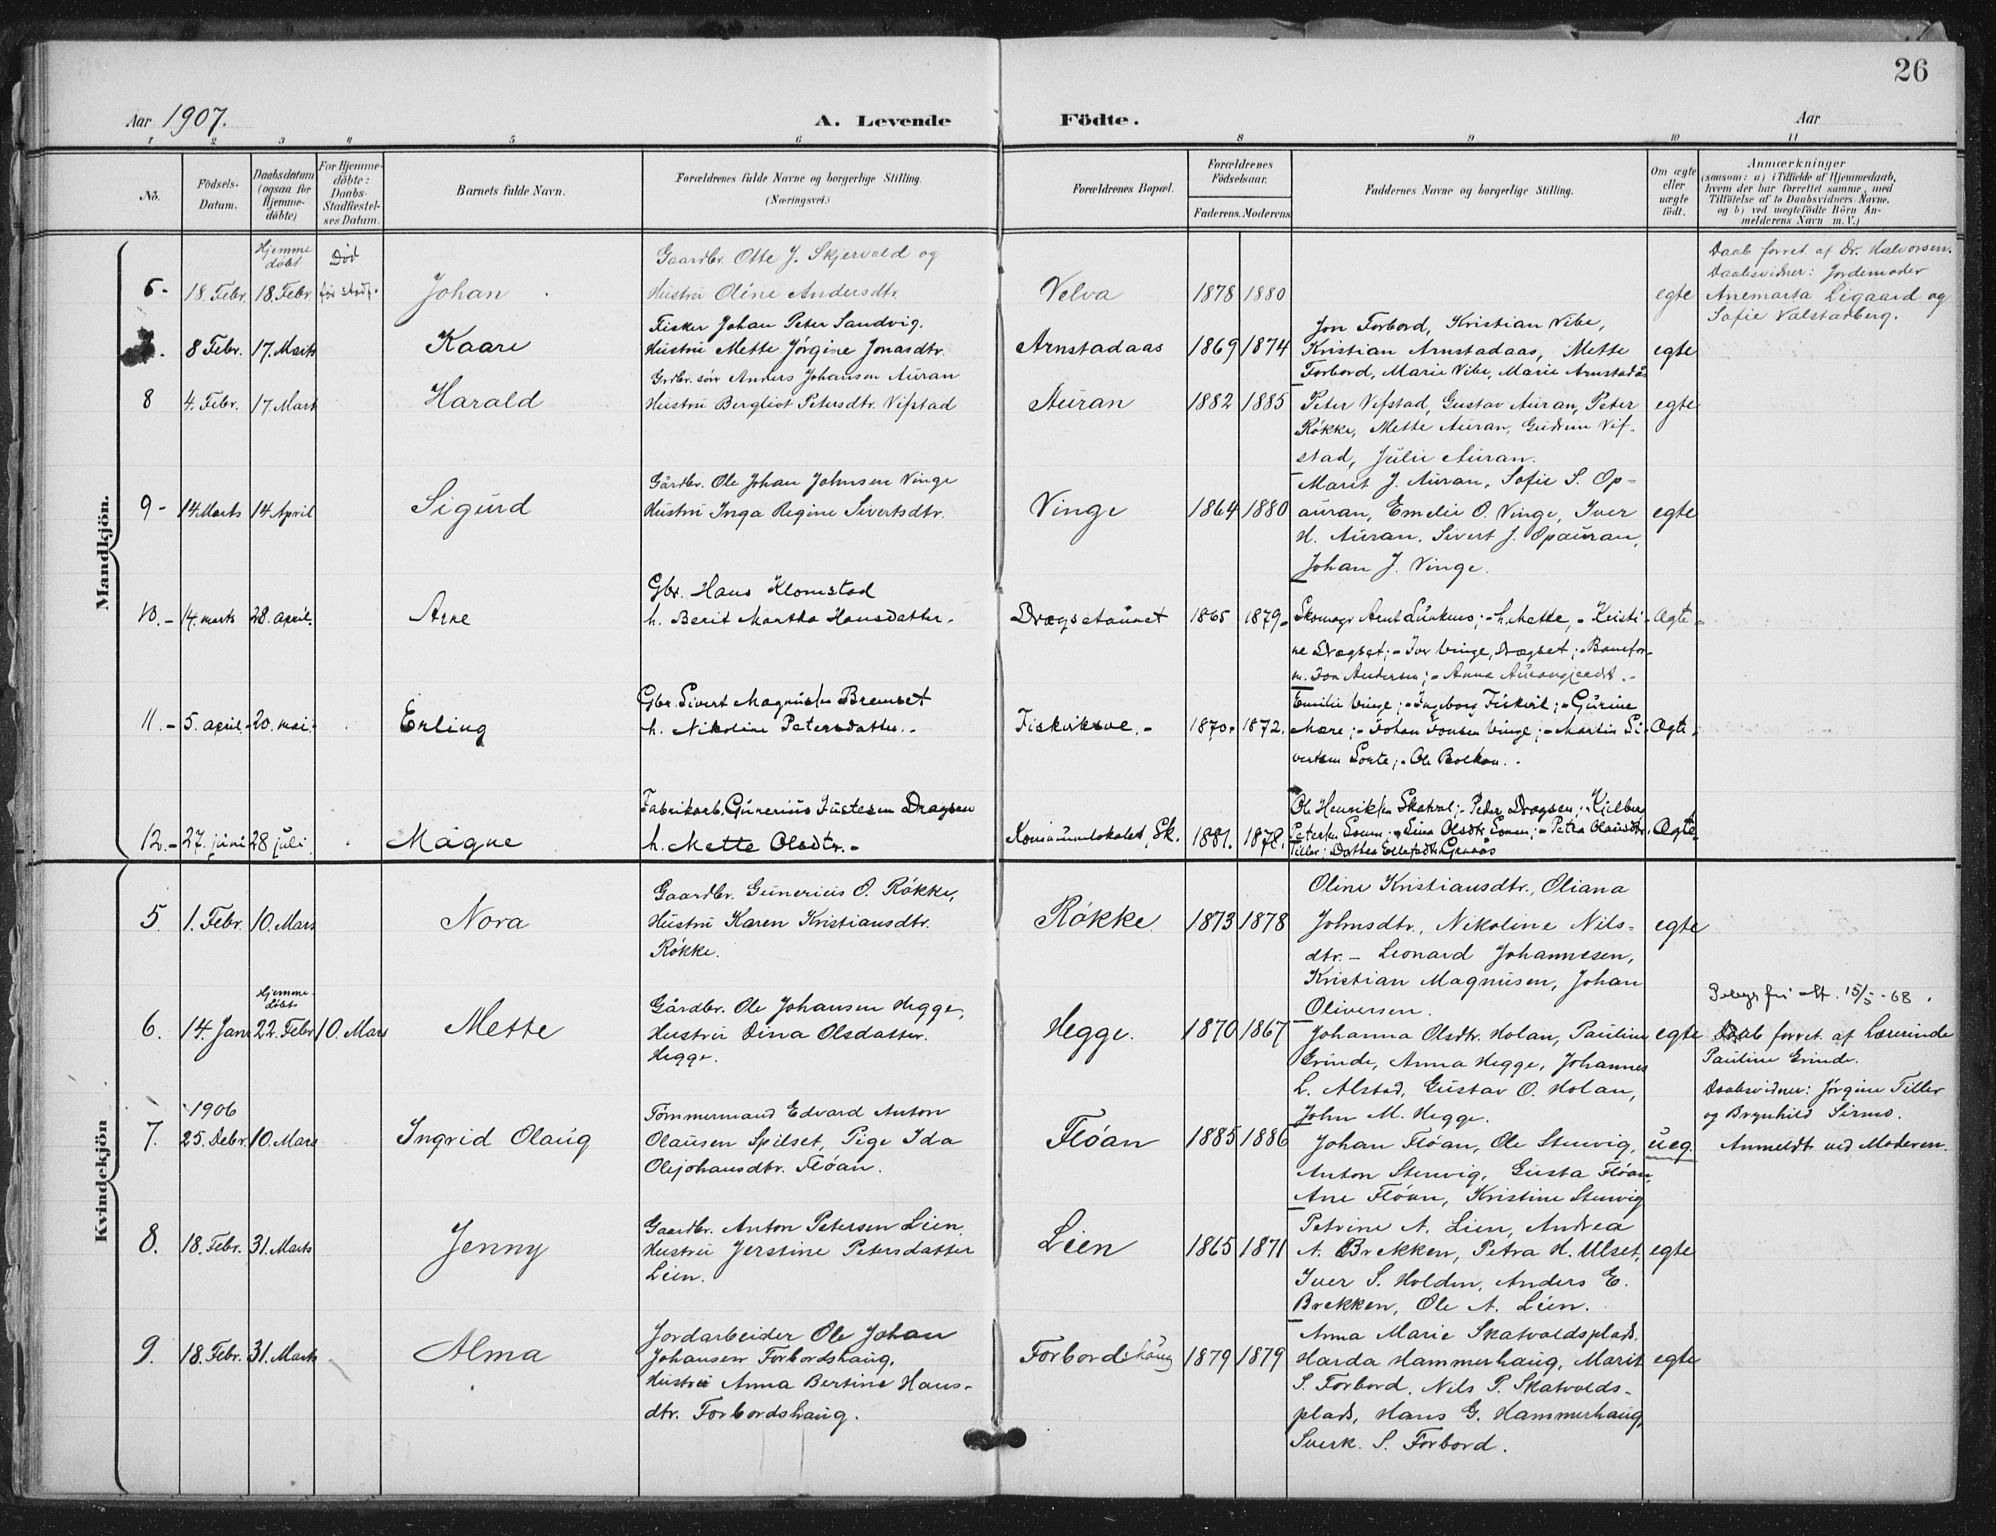 26
Aar 1907.
A. Levende Födte.
Aar
1 2 3 4 5 6 8 9 10 11
No.
Födsels-Datum.
Daabsdatum (ogsaa for Hjemmedöbte)
For Hjemmedöbte: Daabs-Stadfæstelses Datum.
Barnets fulde Navn.
Forældrenes fulde Navne og borgerlige Stilling. (Næringsvei.)
Forældrenes Bopæl.
Forældrenes Födselsaar.
Faderens. Moderens
Faddernes Navne og borgerlige Stilling.
Om ægte eller uægte födt.
Anmærkninger
(saasom: a) i Tilfælde af Hjemmedaab, hvem der har forrettet samme, med Tilföielse af to Daabsvidners Navne. og b) ved uægtefödte Börn Anmelderens Navn m. V.)
Mandkjön.
6- 18. Febr. Hjemme döbt 18. Febr. Död för stadf. Johan
Gaardbr. Otte J. Skjervold og
Hustru Oline Andersdtr.
Velva 1878 1880 egte
Daab forret. af Dr. Halvorsen.
Daabsvidner: Jordemoder
Anemarta Ligaard og
Sofie Valstadberg.
7. 8 Febr. 17. Marts Kaare
Fisker Johan Peter Sandvig.
Hustru Mette Jörgine Jonasdtr.
Arnstadaas 1869 1874
Jon Forbord, Kristian Vibe,
Kristian Arnstadaas, Mette
Forbord, Marie Vibe, Marie Arnstadås
egte
8 4. Febr. 17. Mart Harald
Grdbr. sön Anders Johansen Auran
Hustru Bergliot Petersdtr. Vifstad
Auran 1882 1885
Peter Vifstad, Gustav Auran, Peter
Rökke, Mette Auran, Gudrun Vif-
stad, Julie Auran.
egte
9- 14. Marts 14 April Sigurd
Gårdbr. Ole Johan Johnsen Vinge
Hustru Inga Regine Sivertsdtr.
Vinge 1864 1880
Marit J. Auran, Sofie S. Op-
auran, Emelie O. Vinge, Iver
H. Auran, Sivert J. Opauran,
Johan J. Vinge.
egte
10.- 14. marts 28. april. Arne
Gbr. Hans Klomstad
h. Berit Martha Hansdatter.
Dragsetaunet 1865 1879.
h. Mette, - Kristi-
ne Dragset; - Iver Vinge, Dragset; - Banefor-
m. Jon Andersen; - Anna
Ægte-
11.- 5. april. 20. mai. Erling
Gbr. Sivert Magnus/n Bremset
h. Nikoline Petersdatter.-
Fiskviksve.- 1870. 1872.
Emilie Vinge; - Ingeborg Fiskvik; - Gurine
Mære; - Johan Jonsen Vinge; - Martin Si-
vertsen Sorte; - Ole Bolkan.
Ægte,
12.- 27. juni 28 juli. Magne
Fabrikarb. Gunerius Justesen Dragsen
h. Mette Olsdtr.-
Konsumlokalet, Sk. 1881. 1878.
Ole Henriks/n Skatval; - Peder Dragsen; - Kjelberg
Peters/n - Lina Olsdtr. - Petra Olausdtr.
Tiller; Dorthea
Ægte-
Kvindekjön
5. 1. Febr. 10. Mars Nora
Gaardbr. Gunerius O. Rökke,
Hustru Karen Kristiansdtr.
Rökke.
Rökke. 1873 1878
Oline Kristiansdtr., Oliana
Johnsdtr., Nikoline Nils-
dtr. - Leonard Johannesen,
Kristian Magnusen, Johan
Oliversen.
egte
6. 14. Jan. Hjemmedöbt 22. Febr 10. Mars Mette
Gårdbr. Ole Johansen Hegge,
Hustru Dina Olsdatter.
Hegge.
Hegge. 1870 1867
Johanna Olsdtr. Holan, Pauline
Grinde, Anna Hegge, Johannes
L. Alstad, Gustav O. Holan,
John M. Hegge.
egte
15/5-68.
Daab forret. af Lærerinde
Pauline Grinde.
Daabsvidner: Jörgine Tiller
og Brynhild Sirmo.
7. 1906 25. Debr. 10. Mars Ingrid Olaug
Tömmermand Edvard Anton
Olausen Spilset, Pige Ida
Olejohansdtr. Flöan.
Flöan 1885 1886
Johan Flöan, Ole Stenvig,
Anton Stenvig, Gusta Flöan,
Ane Flöan, Kristine Stenvig
ueg.
Anmeldt ved Moderen.
8. 18. Febr. 31. Marts Jenny
Gaardbr. Anton Petersen Lien,
Hustru Jerstine Petersdatter
Lien.
Lien 1865 1871
Petrine A. Lien, Andrea
A. Brekken, Petra H. Ulset,
Iver S. Holden, Anders E.
Brekken, Ole A. Lien.
egte
9. 18. Febr. 31. Marts Alma
Jordarbeider Ole Johan
Johansen Forbordshaug,
Hustru Anna Bertine Hans-
dtr. Forbordshaug.
Forbordshaug 1879 1879
Anna Marie Skatvoldsplads,
Harda Hammerhaug, Marit
S. Forbord, Nils P. Skatvolds-
plads, Hans G. Hammerhaug,
Sverk. S. Forbord.
egte